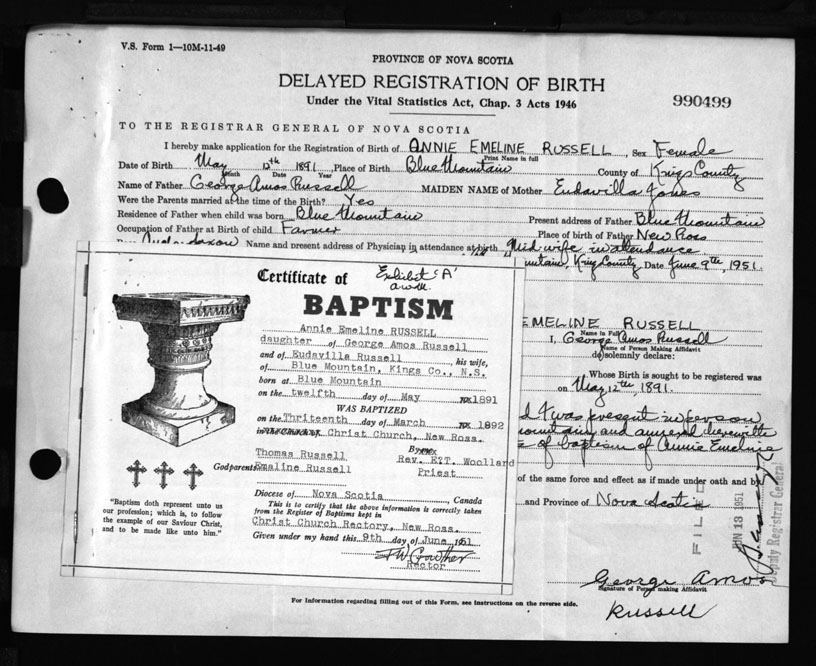 V.S. Form 1—10M-11-49
PROVINCE OF NOVA SCOTIA
DELAYED REGISTRATION OF BIRTH
Under the Vital Statistics Act, Chap. 3 Acts 1946
990499
TO THE REGISTRAR GENERAL OF NOVA SCOTIA
I hereby make application for the Registration of Birth of ANNIE EMELINE RUSSELL, Sex Female
Print Name in full
Date of Birth May 12th 1891 Place of Birth Blue Mountain County of Kings County
Month Date Year
Name of Father George Amos Russell MAIDEN NAME of Mother Eudavilla Jones
Were the Parents married at the time of the Birth? Yes
Residence of Father when child was born Blue Mountain Present address of Father Blue Mountain
Occupation of Father at Birth of child Farmer Place of birth of Father New Ross
Name and present address of Physician in attendance at birth Mid wife in attendance
untain, King County Date June 9th, 1951.
Exhibit 'A'
Certificate of
BAPTISM
Annie Emeline RUSSELL
daughter of George Amos Russell
and of Eudavilla Russell his wife,
of Blue Mountain, Kings Co., N.S.
born at Blue Mountain
on the twelfth day of May 1891
WAS BAPTIZED
on the Thriteenth day of March 1892
Christ Church, New Ross.
Thomas Russell By
Rev. E.T. Woollard
Godparents Emaline Russell Priest
Diocese of Nova Scotia, Canada
This is to certify that the above information is correctly taken
from the Register of Baptisms kept in
Christ Church Rectory, New Ross.
Given under my hand this 9th day of June 1951
Rector
"Baptism doth represent unto us
our profession; which is, to follow
the example of our Saviour Christ,
and to be made like unto him."
EMELINE RUSSELL
Name in Full
I, George Amos Russell
Name of Person Making Affidavit
do solemnly declare:
Whose Birth is sought to be registered was
on May 12th, 1891.
d I was present in person
ountain and annexed herewith
e of baptism of Annie Emeline
of the same force and effect as if made under oath and by
and Province of Nova Scotia
FILED
JUN 13 1951
Deputy Registrar General
George Amos
Signature of Person making Affidavit
Russell
For Information regarding filling out of this Form, see instructions on the reverse side.